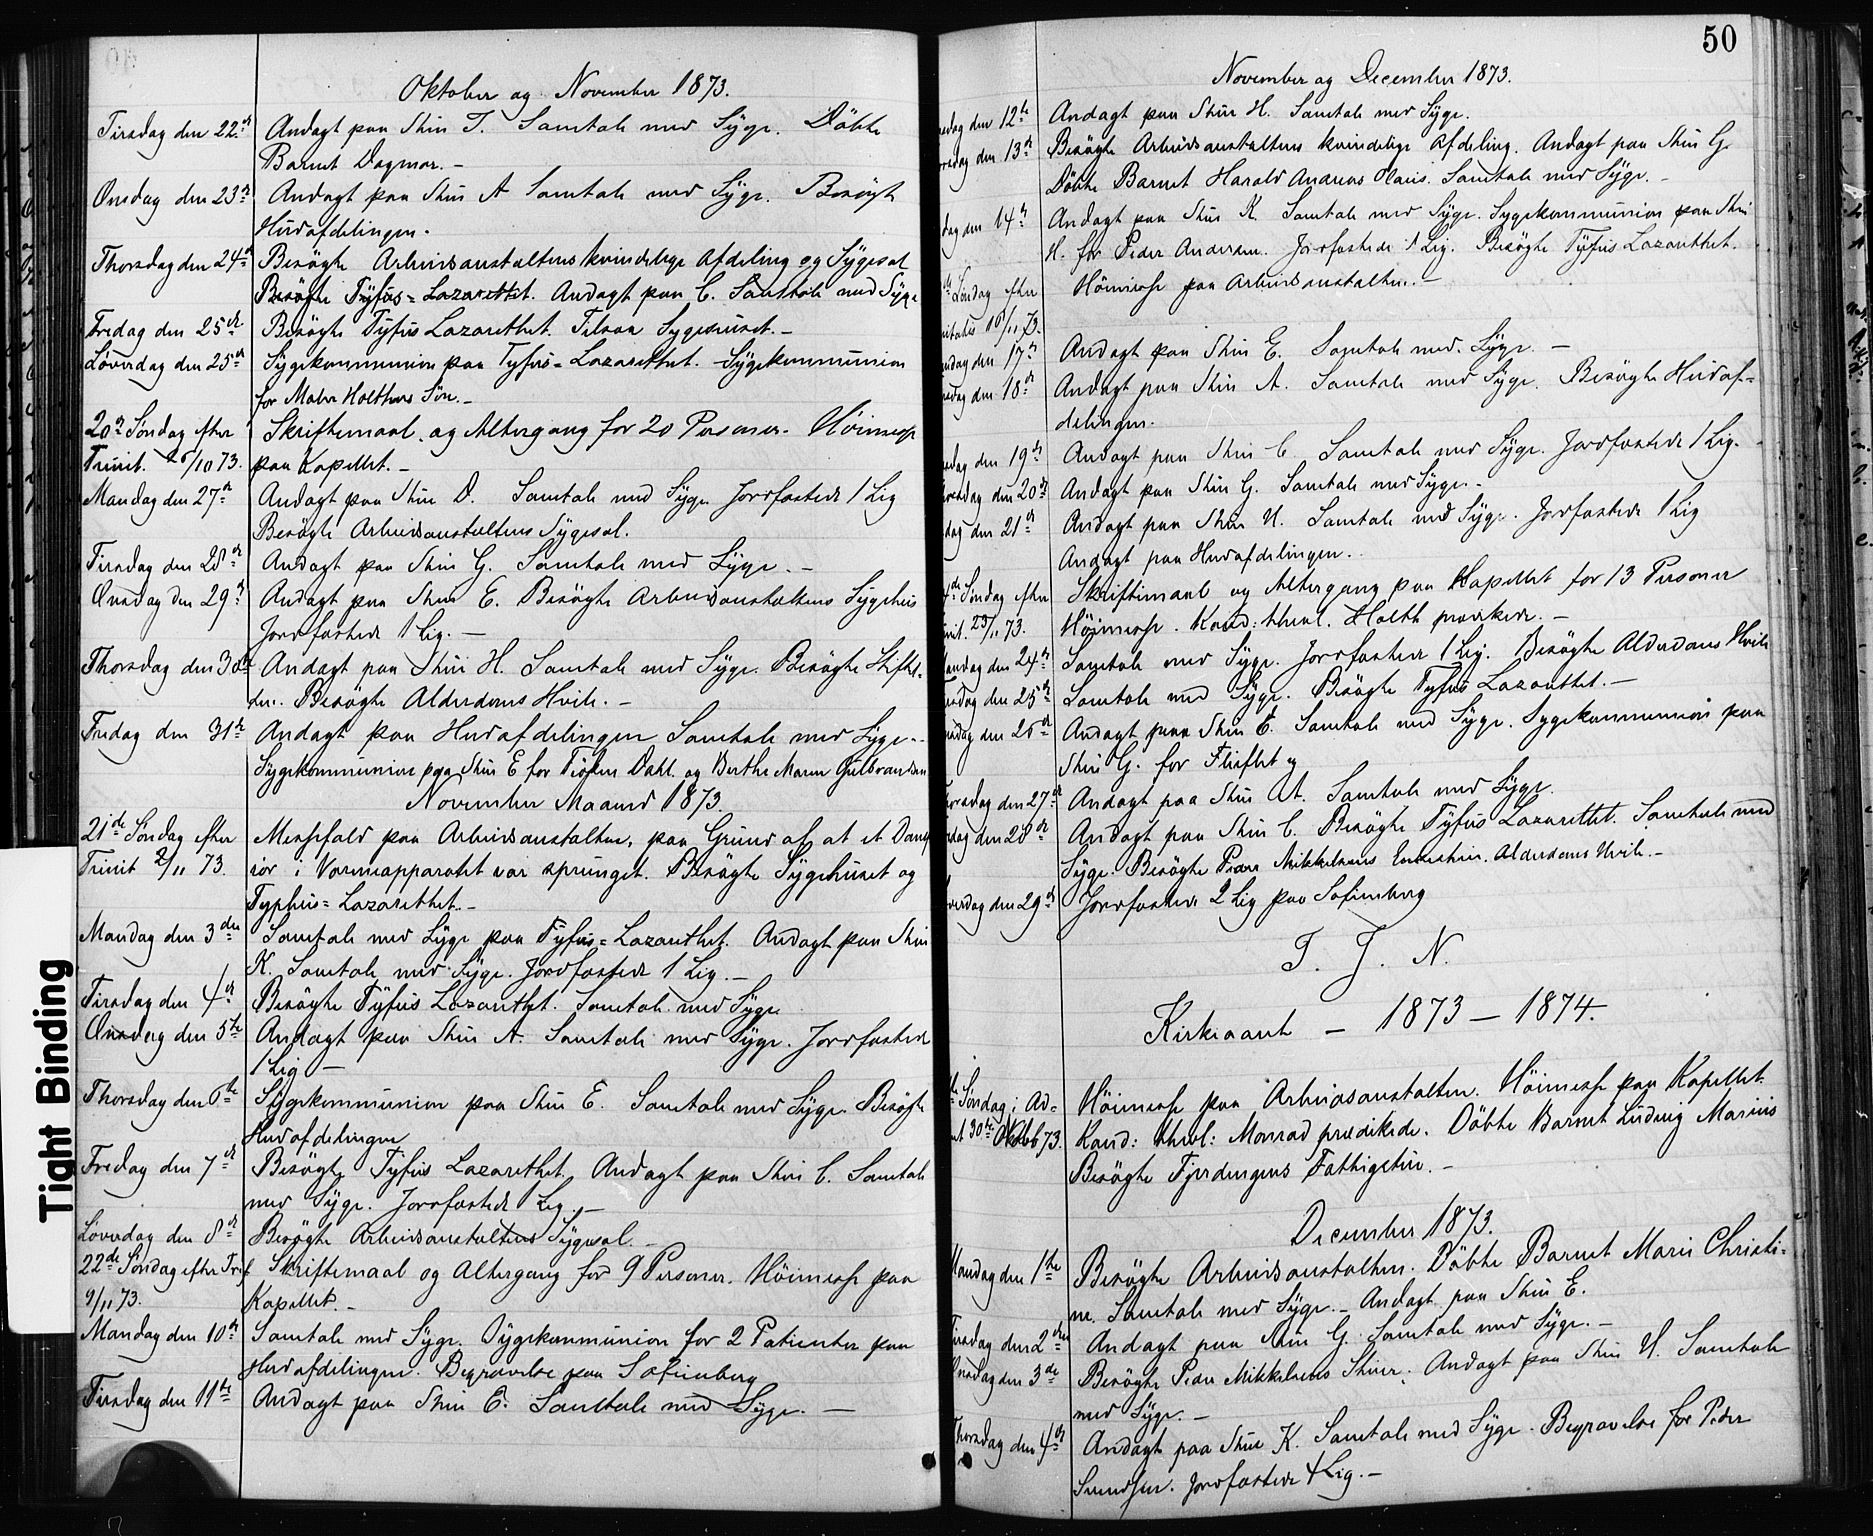 Oktober og November 1873.
Tirsdag den 22de Andagt paa Stue I. Samtale med Syge. Döbte
Barnet Dagmar. –
Onsdag den 23de Andagt paa Stue A Samtale med Syge. Besøgt
Hudafdelingen.
Thorsdag den 24de Besögte Arbeidsanstaltens kvindelige Afdeling og Sygesal
Besögte Tyfus=Lazarethet. Andagt paa C. Samtale med Syge
Fredag den 25de Besögte Tyfus Lazarethet. Tilsaa Sygehuset. –
Löverdag den 25de Sygekommunion paa Tyfus=Lazarethet. Sygekommunion
for Maler Holthes Sön. –
20de Söndag efter Skriftemaal og Altergang for 20 Personer. Höimesse
Trinit. 26/10 73. paa Kapellet. –
Mandag den 27de Andagt paa Stue D. Samtale med Syge Jordfæstede 1 Lig
Besögte Arbeidsanstaltens Sygesal.
Tirsdag den 28de Andagt paa Stue G. Samtale med Syge. –
Onsdag den 29de Andagt paa Stue E. Besögte Arbeidsanstaltens Sygehus
Jordfæstede 1 Lig. –
Thorsdag den 30te Andagt paa Stue H. Samtale med Syge. Besögte Stiftel-
sen. Besögte Alderdoms Hvile. –
Fredag den 31te Andagt paa Hudafdelingen Samtale med Syge. –
Sygekommunion paa Stue E for Dahl og Berthe Marie Gulbrandsen
November Maaned 1873.
21de Söndag efter Messefald paa Arbeidsanstalten, paa Grund af at et Damp
Trinit 2/11 73. rör i Varmeapparatet var sprunget. Besögte Sygehuset og
Typhus=Lazarethet. –
Mandag den 3die Samtale med Syge paa Tyfus=Lazarethet. Andagt paa Stue
K. Samtale med Syge. Jordfæstede 1 Lig. –
Tirsdag den 4de Besögte Tyfus Lazarethet. Samtale med Syge
Onsdag den 5te Andagt paa Stue A. Samtale med Syge. Jordfæstede
1 Lig –
Thorsdag den 6te Sygekommunion paa Stue E. Samtale med Syge Besögte
Hudafdelingen
Fredag den 7de Besögte Tyfus Lazarethet. Andagt paa Stue C. Samtale
med Syge. Jordfæstede Lig. –
Löverdag den 8de Besögte Arbeidsanstaltens Sygesal –
22de Söndag efter Trinit Skriftemaal og Altergang for 9 Personer. Höimesse paa
9/11 73. Kapellet. –
Mandag den 10de Samtale med Syge. Sygekommunion for 2 Patienter paa
Hudafdelingen. Begravelse paa Sofienberg
Tirsdag den 11te Andagt paa Stue E. Samtale med Syge. –
50
November og December 1873.
den 12te Andagt paa Stue H. Samtale med Syge.
den 13de Besögte Arbeidsanstaltens kvindelige Afdeling. Andagt paa Stue G.
Döbte Barnet Harald Andreas Samtale med Syge. –
den 14de Andagt paa Stue K. Samtale med Syge. Sygekommunion paa Stue
H. for Peder Andersen. Jordfæstede 1 Lig. Besögte Tyfus Lazarethet.
Söndag efter Höimesse paa Arbeidsanstalten. –
16/11 73.
den 17de Andagt paa Stue E. Samtale med Syge. –
den 18de Andagt paa Stue A. Samtale med Syge. Besögte Hudaf-
delingen.
den 19de Andagt paa Stue C. Samtale med Syge. Jordfæstede 1 Lig.
den 20de Andagt paa Stue G. Samtale med Syge. –
den 21de Andagt paa Stue H. Samtale med Syge. Jordfæstede 1 Lig
Andagt paa Hudafdelingen.
Söndag efter Skriftemaal og Altergang paa Kapellet for 13 Personer
23/11 73. Höimesse. Kand: theol. Holth prædikede. –
den 24de Samtale med Syge. Jordfæstede 1 Lig. Besögte Alderdoms Hvile
den 25de Samtale med Syge. Besögte Tyfus Lazarethet. –
den 26de Andagt paa Stue E. Samtale med Syge. Sygekommunion paa
Stue G. for
den 27de Andagt paa Stue A. Samtale med Syge.
den 28de Andagt paa Stue C. Besögte Tyfus Lazarethet. Samtale med
Syge. Besögte Peder Mikkelsens Alderdoms Hvile. –
den 29de Jordfæstede 2 Lig paa Sofienberg
I. J. N.
Kirkeaaret – 1873 – 1874.
Söndag i Ad- Höimesse paa Arbeidsanstalten. Höimesse paa Kapellet.
30te 73. Kand: theol: Monrad prædikede. Döbte Barnet Ludvig Marius
Besögte Fjerdingens Fattigstue. –
December 1873.
Mandag den 1te Besögte Arbeidsanstalten. Döbte Barnet Marie Christi-
ne. Samtale med Syge. – Andagt paa Stue E.
Tirsdag den 2den Andagt paa Stue G. Samtale med Syge. –
Onsdag den 3de Besögte Peder Mikkelsens Stuer. Andagt paa Stue H. Samtale
med Syge. –
Thorsdag den 4de Andagt paa Stue K. Samtale med Syge. Begravelse for Peder
Jordfæstede 4 Lig. –
Tight Binding